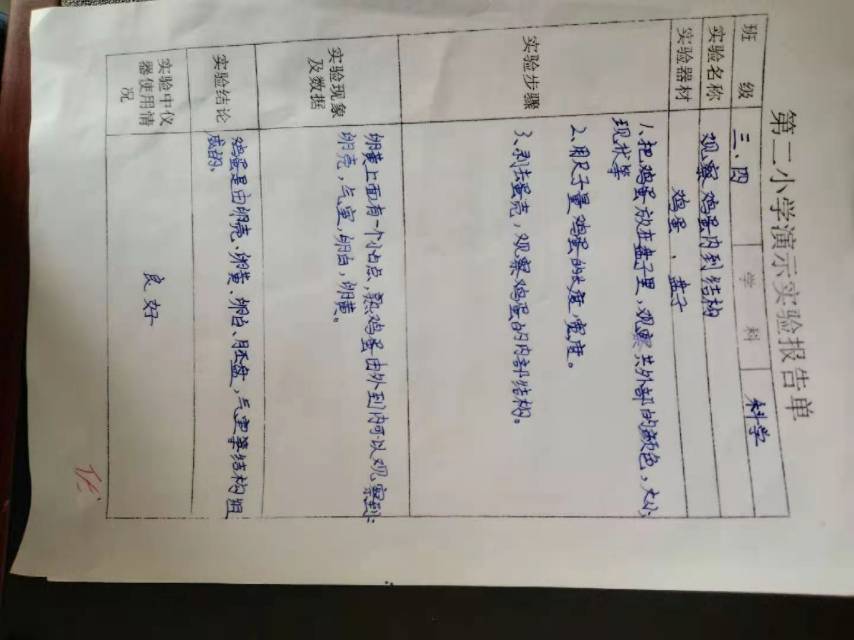 第二小学演示实验报告单
班 级 三、四 学 科 科学
实验名称 观察鸡蛋内到结构
实验器材 鸡蛋、盘子
实验步骤
1、把鸡蛋放在盘子里，观察其外部的颜色，大小，
现状等
2、用尺子量鸡蛋的长度，宽度。
3、剥去蛋壳，观察鸡蛋的内部结构。
实验现象
及数据
卵黄上面有一个小白点，熟鸡蛋由外到内可以观察到：
卵壳，气室，卵白，卵黄。
实验结论
鸡蛋是由卵壳、卵黄、卵白、胚盘，气室等结构组
成的。
实验中仪
器使用情
况
良好
优